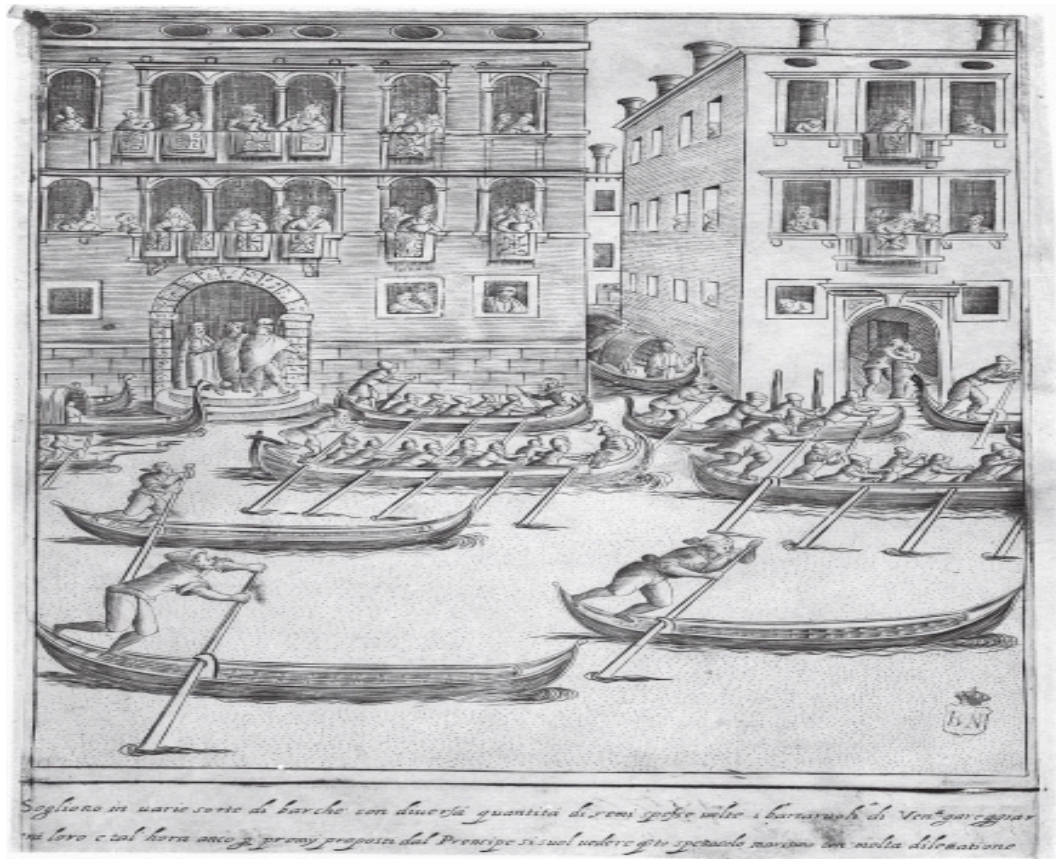 B N
Sogliono in varie sorte di barche con diversa quantità di remi spesse volte i barcaruoli di Ven.ª gareggiar
loro e tal hora anco premij proposti dal Prencipe si suol vedere q̃sto spetacolo maritimo con molta dilettatione